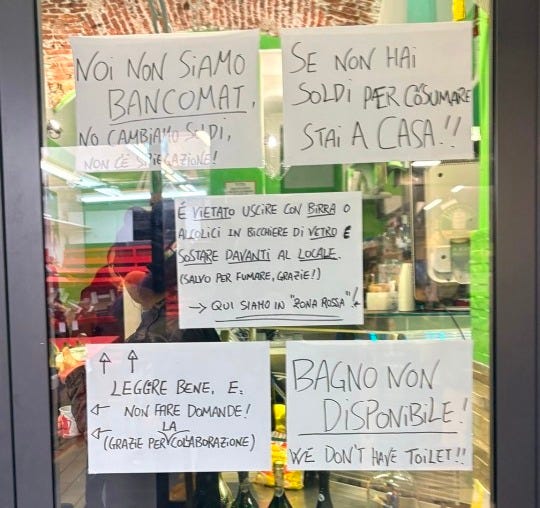 NOI NON SIAMO
BANCOMAT,
NO CAMBIAMO SOLDI,
NON C'È SPIEGAZIONE!
SE NON HAI
SOLDI PER CONSUMARE
STAI A CASA!!
É VIETATO USCIRE CON BIRRA O
ALCOLICI IN BICCHIERE DI VETRO E
SOSTARE DAVANTI AL LOCALE.
(SALVO PER FUMARE, GRAZIE!)
→ QUI SIAMO IN "ZONA ROSSA"! ←
↑ ↑
LEGGRE BENE, E:
← NON FARE DOMANDE!
← (GRAZIE PER LA COLLABORAZIONE)
BAGNO NON
DISPONIBILE!
WE DON'T HAVE TOILET!!